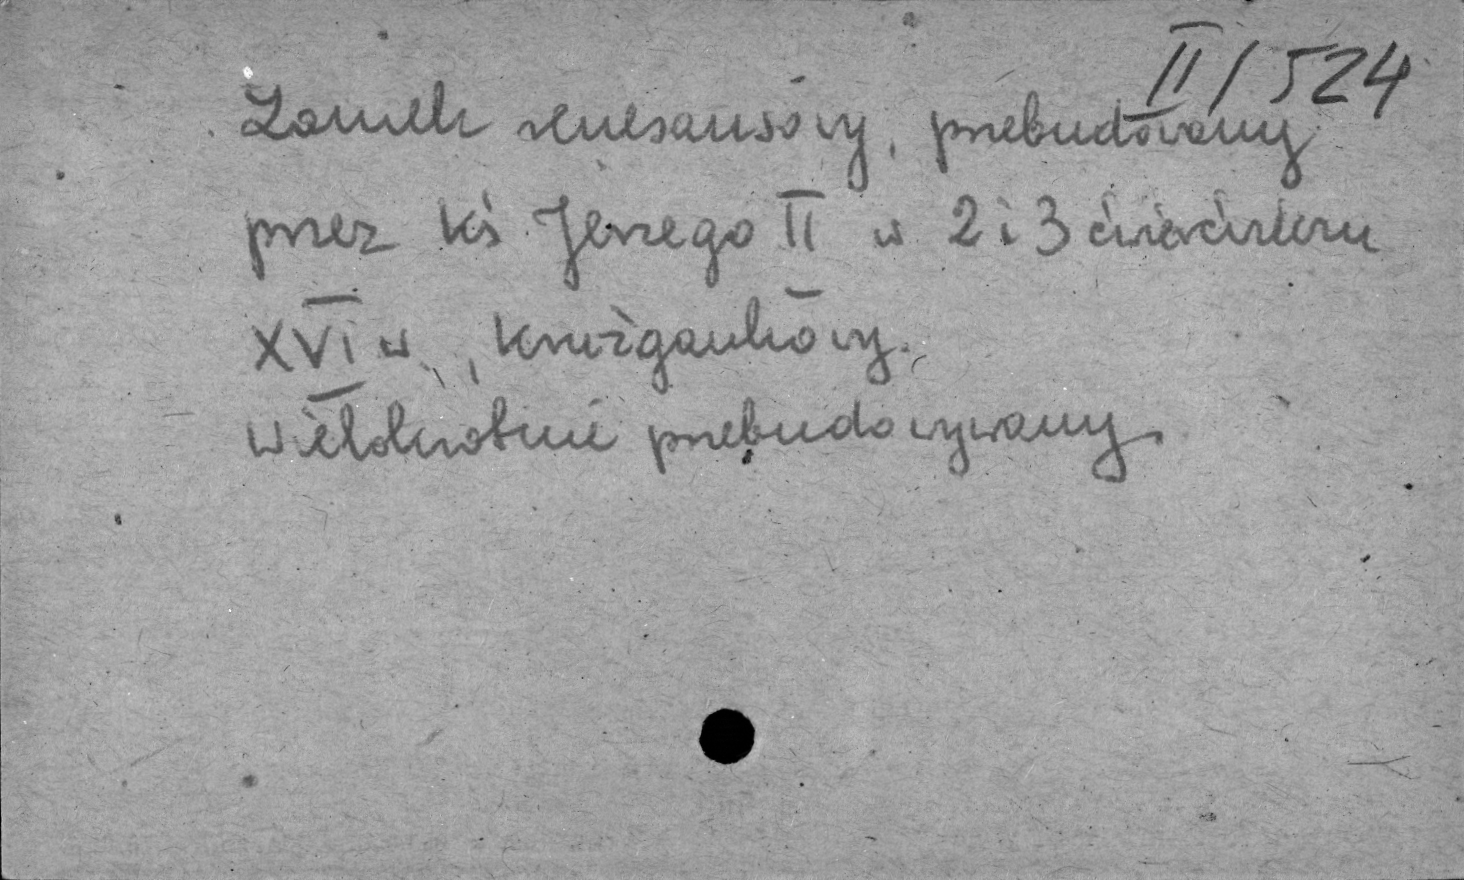 II/524
Zamek renesansowy, przebudowany
przez ks Jerzego II w 2 i 3 ćwierćwieczu
XVI w, krużgankowy.
Wielokrotnie przebudowywany.